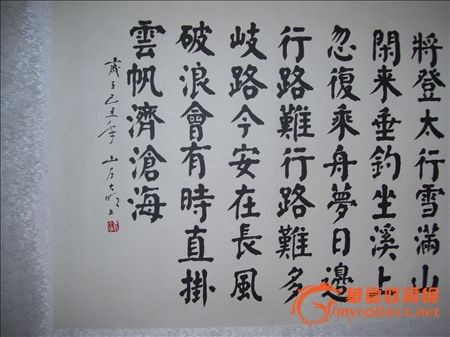 將登太行雪滿山
閑来垂釣坐溪上
忽復乘舟夢日邊
行路難行路難多
岐路今安在長風
破浪會有時直掛
雲帆濟滄海
歲于己丑年
華夏收藏網
mycollect.net